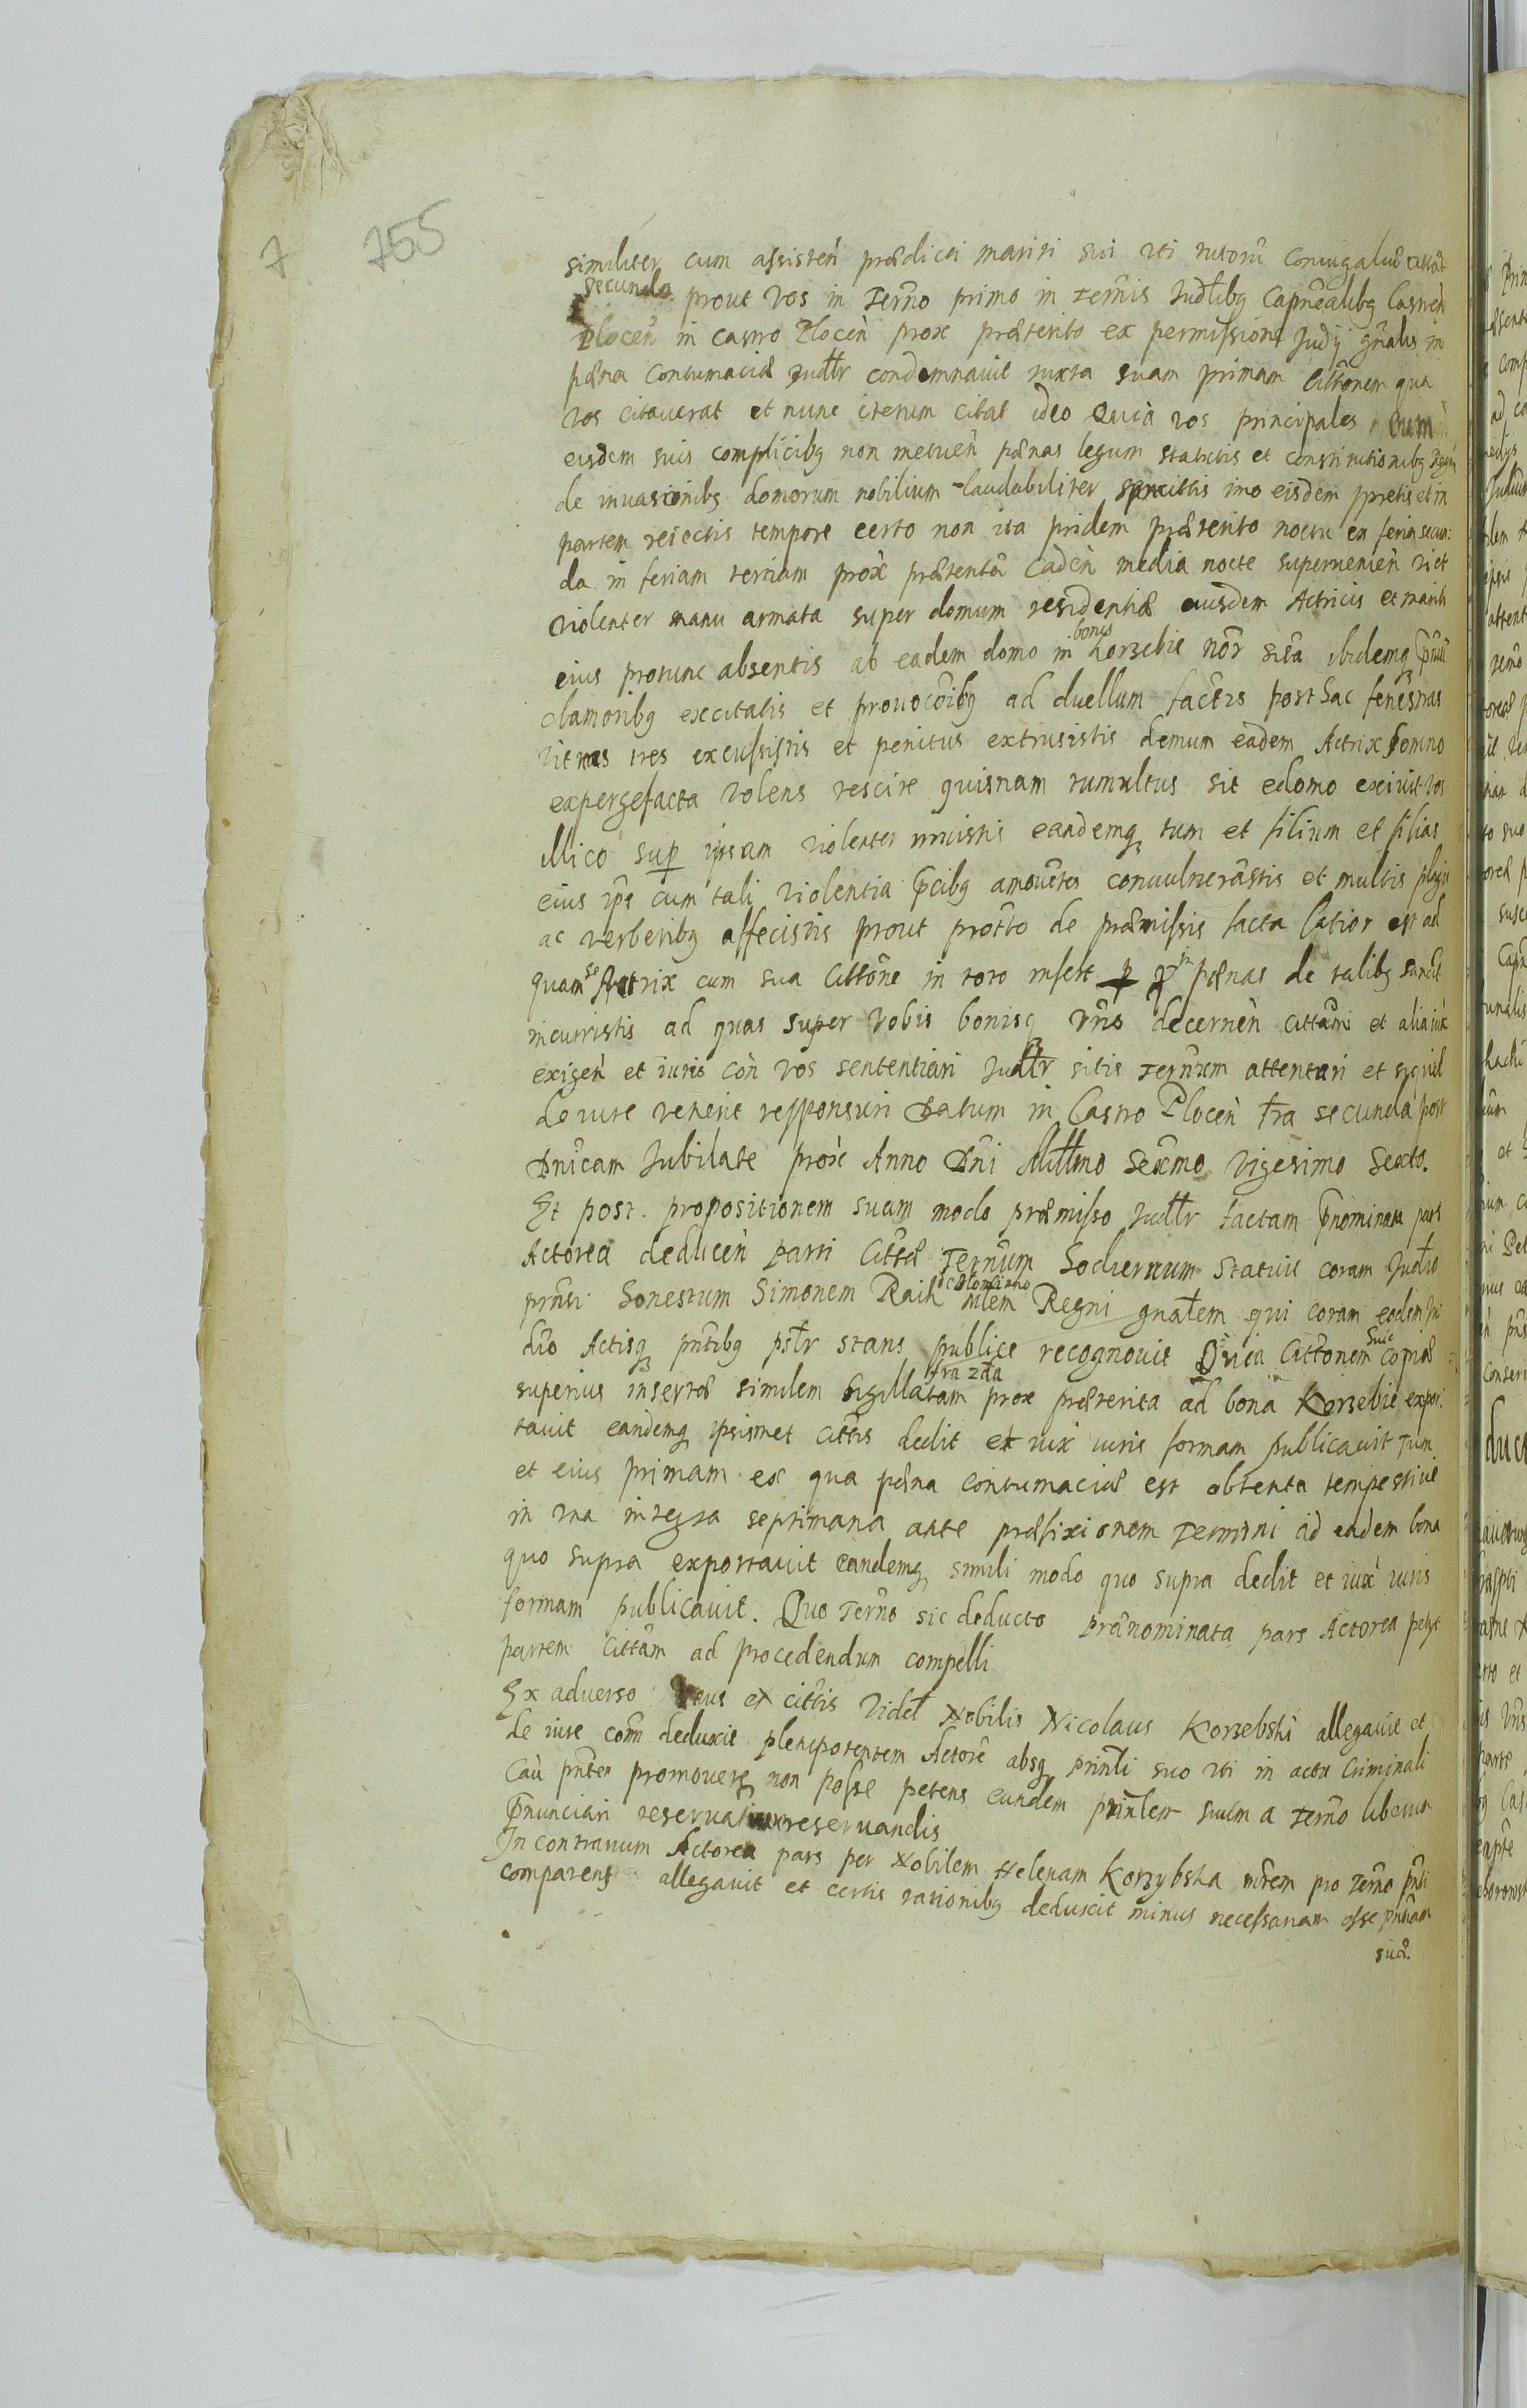 7 755
similiter cum assisten prædicti mariti sui uti tutoru coniugalium
secundo prout vos in Termo primo in Termis Judlibg Capnealibg Castren
Plocen in Castro Plocen prox præterito ex permissione Judy gnalis in
pæna Contumaciæ Judtr condemnauit iuxta suam primam Citтonem qua
vos citauerat et nunc iterum citat ideo Quia vos principales cum
eisdem suis complicibg non metuen pænas legum statutis et constitutionibg Regni
de inuasionibg domorum nobilium laudabiliter sancitis imo eisdem spretis et in
partem reiectis tempore certo non ita pridem præterito noctu ex feria secun:
da in feriam tertiam prox præterita caden media nocte superuenien vi et
violenter manu armata super domum residentiæ eiusdem Actricis et mariti
eius protunc absentis ab eadem domo in bonis Korzebie nor sita ibidemq
clamoribg excitatis et prouocoibg ad duellum factis post hac fenestras
vitreas tres excussistis et penitus extrusistis demum eadem Actrix somno
expergefacta volens rescire quisnam tumultus sit e domo exiuit vos
illico sup ipsam violenter irruistis eandemq tum et filium et filias
eius cum tali violentia amouentes conuulnerastis et multis plagis
ac verberibg affecistis prout de præmissis facta latior est ad
quam se Actrix cum sua Cittone in toto refert in pænas de talibg sancit
incurristis ad quas super vobis bonisq vris decernen cittam et alia iux
exigen et iuris con vos sententiari Judtr sitis Ternum attentari et siquid
de iure venerit responsuri Datum in Castro Plocen fra secunda post
Dnicam Jubilate prox Anno Dni Millmo Sexmo vigesimo Sexto.
Et post propositionem suam modo præmisso Judtr factam pnominata pars
Actorea deducen parti Cittæ Ternum hodiernum statuit coram Judio
prnti honestum Simonem Raik de Stomiano mtem Regni gnalem qui coram eodem Ju
dio Actisq pntibg pstr stans publice recognouit Quia Cittonem suæ copiæ
superius insertæ similem Sigillatam fra 2da prox præterita ad bona Korzebie expor:
tauit eandemq ipsismet cittis dedit et iux iuris formam publicauit Tum
et eius primam ex qua pæna contumaciæ est obtenta tempestiue
in una integra septimana ante præfixionem Termini ad eadem bona
quo supra exportauit eandemq simili modo quo supra dedit et iux iuris
formam publicauit. Quo Terno sic deducto prænominata pars Actorea petyt
partem Cittam ad procedendum compelli
Ex aduerso vnus ex cittis videt Nobilis Nicolaus Korzebski allegauit et
de iure com deduxit plenipotentem Actore absq prinli suo uti in actu Criminali
Cau pnter promouere non posse petens eundem prinlem suum a Terno liberum
pnunciari reseruatis reseruandis
In contrarium Actorea pars per Nobilem Helenam Korzybska mrem pro Terno pnti
comparens allegauit et certis rationibg deduxit minus necessariam esse pntiam
suæ.